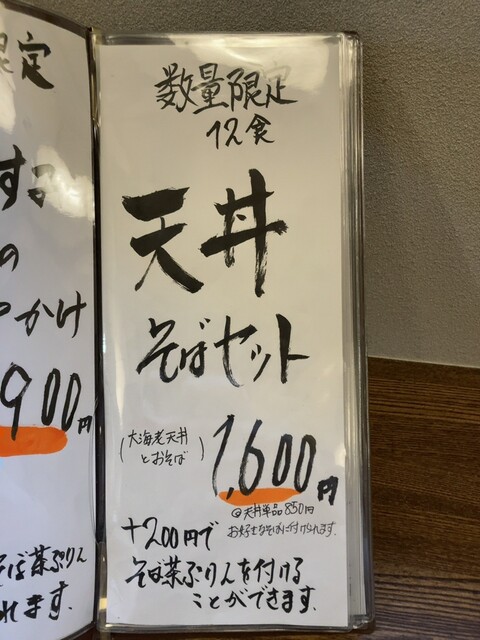 限定
する
の
かけ
900円
そば茶ぷりん
れます.
数量限定
12食
天丼
そばセット
(大海老天丼
とおそば)
1,600円
◎天丼単品850円
お好きなそばに付けられます.
+200円で
そば茶ぷりんを付ける
ことができます.